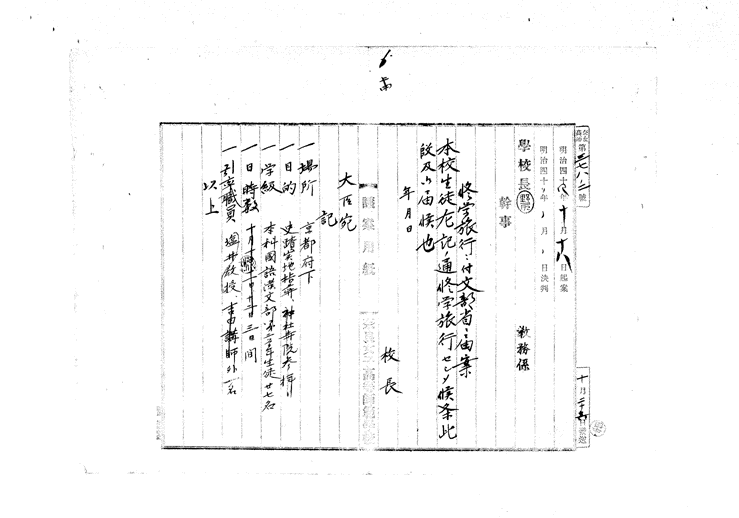 第三七八三號
明治四十 年十月十八日起案
明治四十 年 月 日決判
十月二十 日発送
學校長
幹事
教務係
修学旅行ニ付文部省ヘ届案
本校生徒左記ノ通修学旅行セシメ候条此
段及御届候也
年月日
校長
大臣宛
記
一場所 京都府下
一目的 史蹟実地指示神社寺院参拝
一学級 本科國語漢文部第三学年生徒廿七名
一日時数 十月 三日間
一引率職員 教授 講師外一名
以上
議案用紙
奈良女子高等師範學校